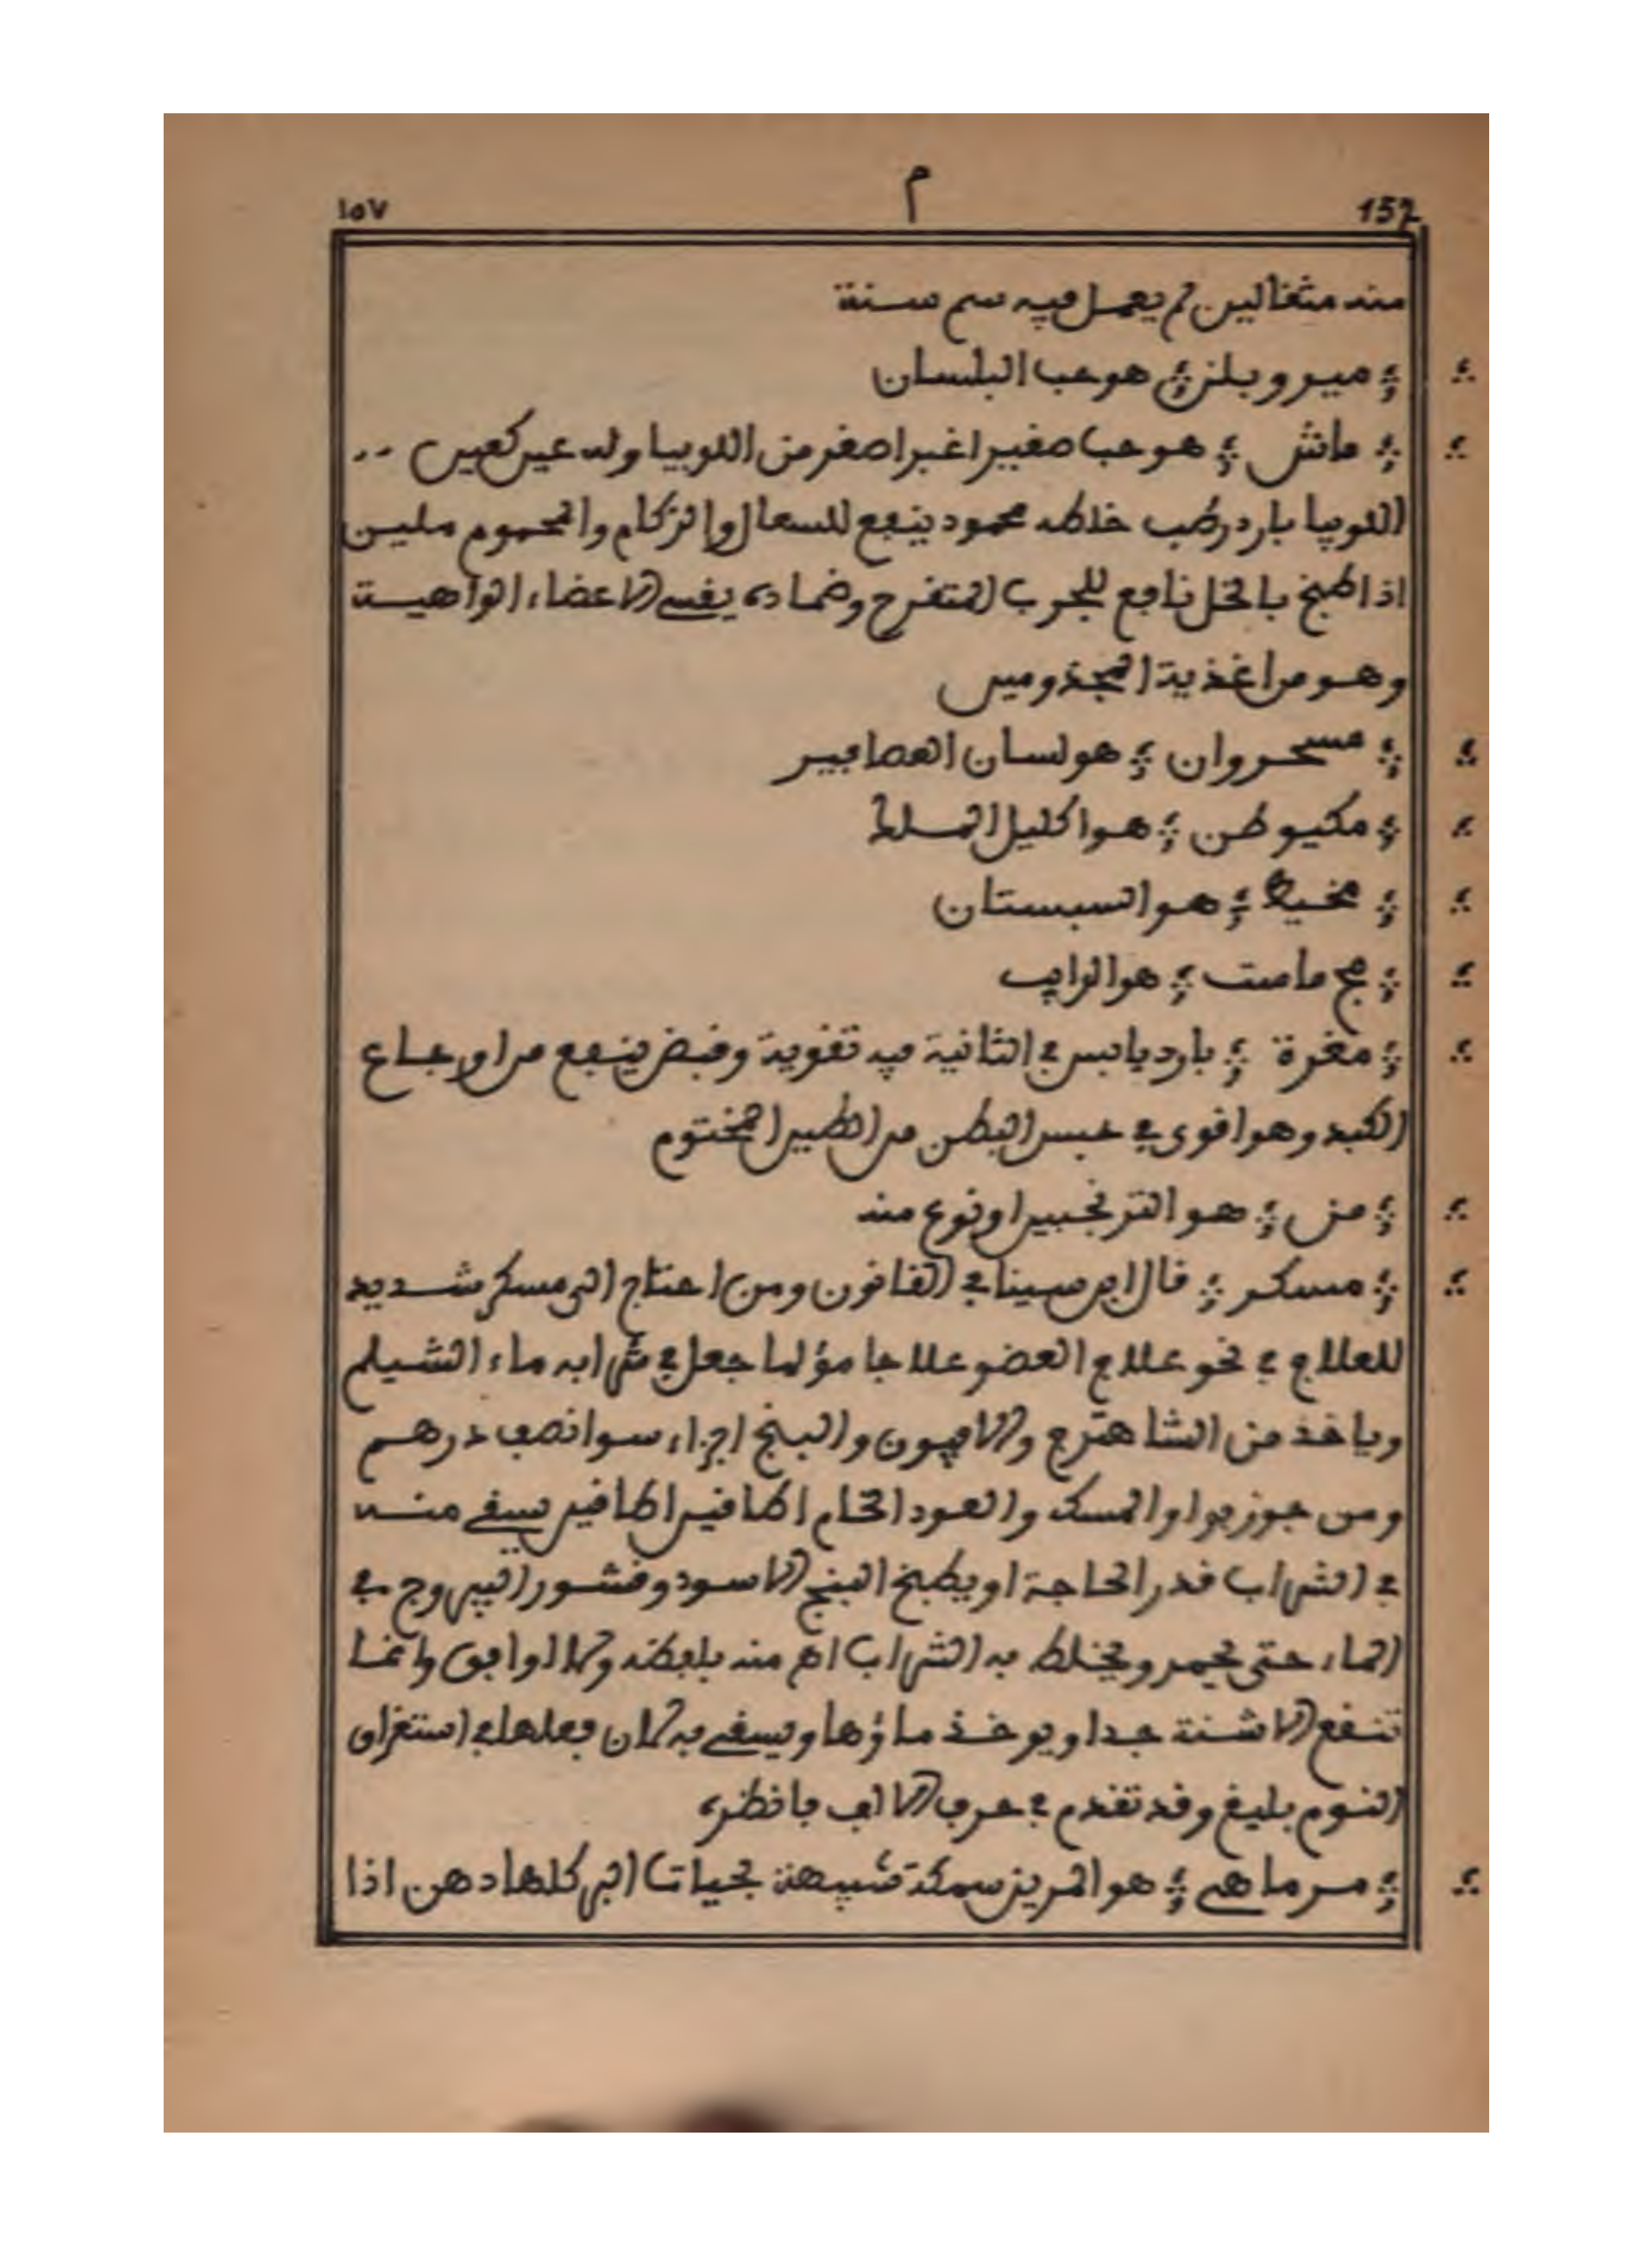 ١٥٧ م 157
منه مثقالين لم يعمل فيه سم سنة
؞ ميروبلنز ؞ هو حب البلسان
؞ ماش ؞ هو حب صغير اغبر اصغر من اللوبيا وله عين كعين
اللوبيا بارد رطب خلطه محمود ينفع للسعال والزكام والمحموم ملين
اذا طبخ بالخل نافع للجرب المتقرح وضماده يقوي الاعضاء الواهية
وهو من اغذية المجذومين
؞ مسحروان ؞ هو لسان العصافير
؞ مكيوطن ؞ هو اكليل الملك
؞ مخيط ؞ هو السبستان
؞ مج ماست ؞ هو الرايب
؞ مغرة ؞ بارد يابس في الثانية فيه تقوية وقبض ينفع من اوجاع
الكبد وهو اقوى في حبس البطن من الطين المختوم
؞ من ؞ هو الترنجبين او نوع منه
؞ مسكر ؞ قال ابن سينا في القانون ومن احتاج الى مسكر شديد
للعلاج في نحو علاج العضو علاجا مؤلما جعل في شرابه ماء الشيلم
وياخذ من الشاهترج والافيون والبنج اجزاء سوا نصف درهم
ومن جوز بوا والمسك والعود الخام اطافير اطافير يسقى منه
في الشراب قدر الحاجة او يطبخ البنج الاسود وقشور اليبروج في
الماء حتى يحمر ويخلط به الشراب اهـ منه بلفظه ولا اوافق وانما
تنفع الاشنة جدا ويوخذ ماؤها ويسقى به لان فعلها في استغراق
النوم بليغ وقد تقدم في حرف الالف فانظره
؞ مرماهي ؞ هو المرين سمكة شبيهة بحيات البر كلها دهن اذا